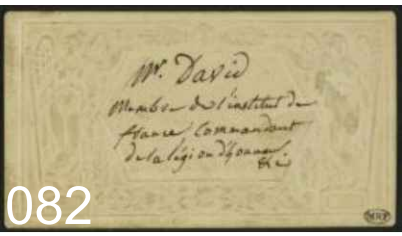 Mr. David
Membre de l'institut de
france Commandant
de la légion d'honneur
&c
082